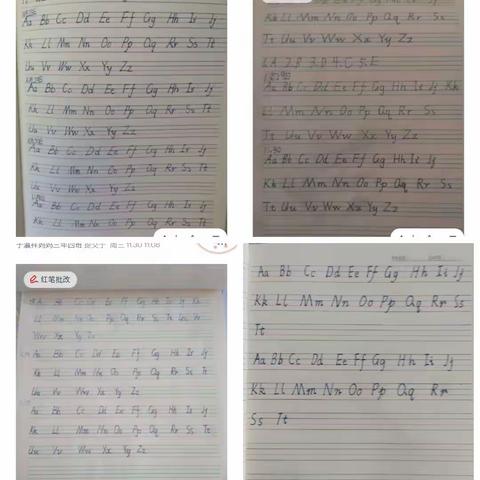 Aa Bb Cc Dd Ee Ff Gg Hh Ii Jj
Kk Ll Mm Nn Oo Pp Qq Rr Ss Tt
Uu Vv Ww Xx Yy Zz
Aa Bb Cc Dd Ee Ff Gg Hh Ii Jj
Kk Ll Mm Nn Oo Pp Qq Rr Ss Tt
Uu Vv Ww Xx Yy Zz
Aa Bb Cc Dd Ee Ff Gg Hh Ii Jj
Kk Ll Mm Nn Oo Pp Qq Rr Ss Tt
Uu Vv Ww Xx Yy Zz
Aa Bb Cc Dd Ee Ff Gg Hh Ii Jj
Kk Ll Mm Nn Oo Pp Qq Rr Ss Tt
Kk Ll Mm Nn Oo Pp Qq Rr Ss
Tt Uu Vv Ww Xx Yy Zz
Aa Bb Cc Dd Ee Ff Gg Hh Ii Jj Kk
Ll Mm Nn Oo Pp Qq Rr Ss
Tt Uu Vv Ww Xx Yy Zz
11.30
Aa Bb Cc Dd Ee Ff Gg Hh Ii Jj
Kk Ll Mm Nn Oo Pp Qq Rr Ss
Tt Uu Vv Ww Xx Yy Zz
周三 11.30 11:08
红笔批改
Bb Cc Dd Ee Ff Gg Hh Ii Jj Kk
Ll Mm Nn Oo Pp Qq Rr Ss Tt Uu Vv
Ww Xx Yy Zz
Aa Bb Cc Dd Ee Ff Gg Hh Ii Jj
Kk Ll Mm Nn Oo Pp Qq Rr Ss Tt
Uu Vv Ww Xx Yy Zz
Aa Bb Cc Dd Ee Ff Gg Hh Ii Jj
Kk Ll Mm Nn Oo Pp Qq Rr Ss Tt
Uu Vv Ww Xx Yy Zz
Aa Bb Cc Dd Ee Ff Gg Hh Ii Jj
Kk Ll Mm Nn Oo Pp Qq Rr Ss
Tt
Aa Bb Cc Dd Ee Ff Gg Hh Ii Jj
Kk Ll Mm Nn Oo Pp Qq Rr
Ss Tt